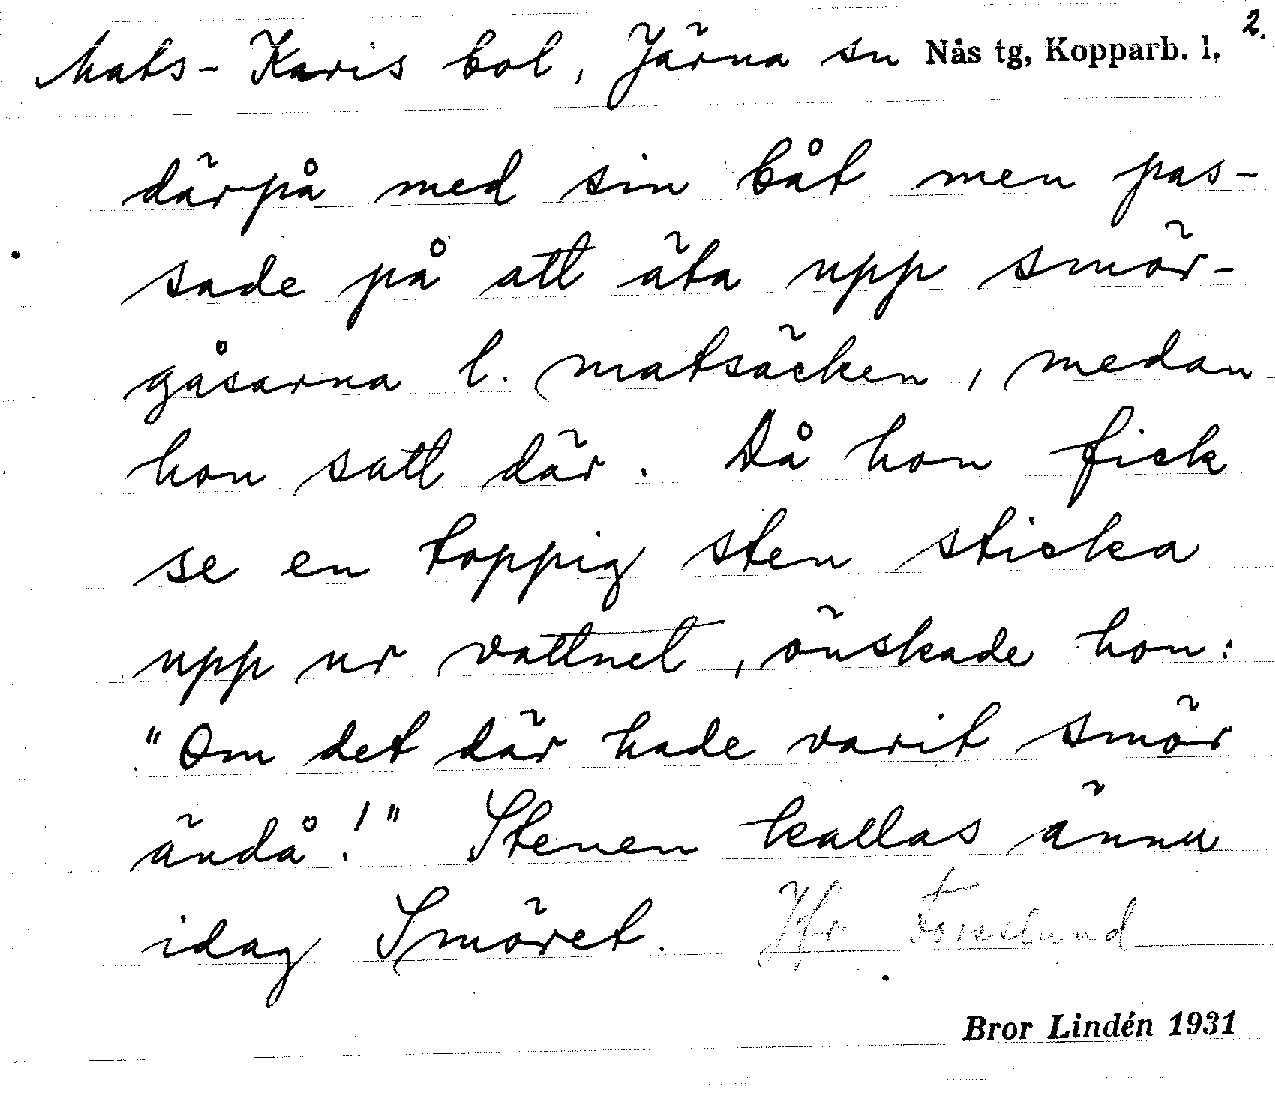 Mats-Karis bol, Järna sn Nås tg, Kopparb. l. 2.
därpå med sin båt men pas-
sade på att äta upp smör-
gåsarna l. matsäcken, medan
hon satt där. Då hon fick
se en toppig sten sticka
upp ur vattnet, önskade hon:
"Om det där hade varit smör
ändå!" Stenen kallas ännu
idag Smöret. Hr Forslund
Bror Lindén 1931